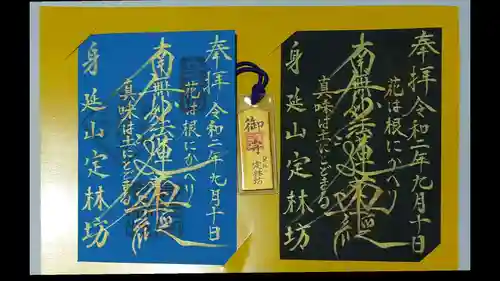 奉拝 令和二年九月十日
花は根にかへり
南無妙法蓮華経
真味は土にとどまる
身延山定林坊
御守
身延山
定林坊
奉拝 令和二年九月十日
花は根にかへり
南無妙法蓮華経
真味は土にとどまる
身延山定林坊